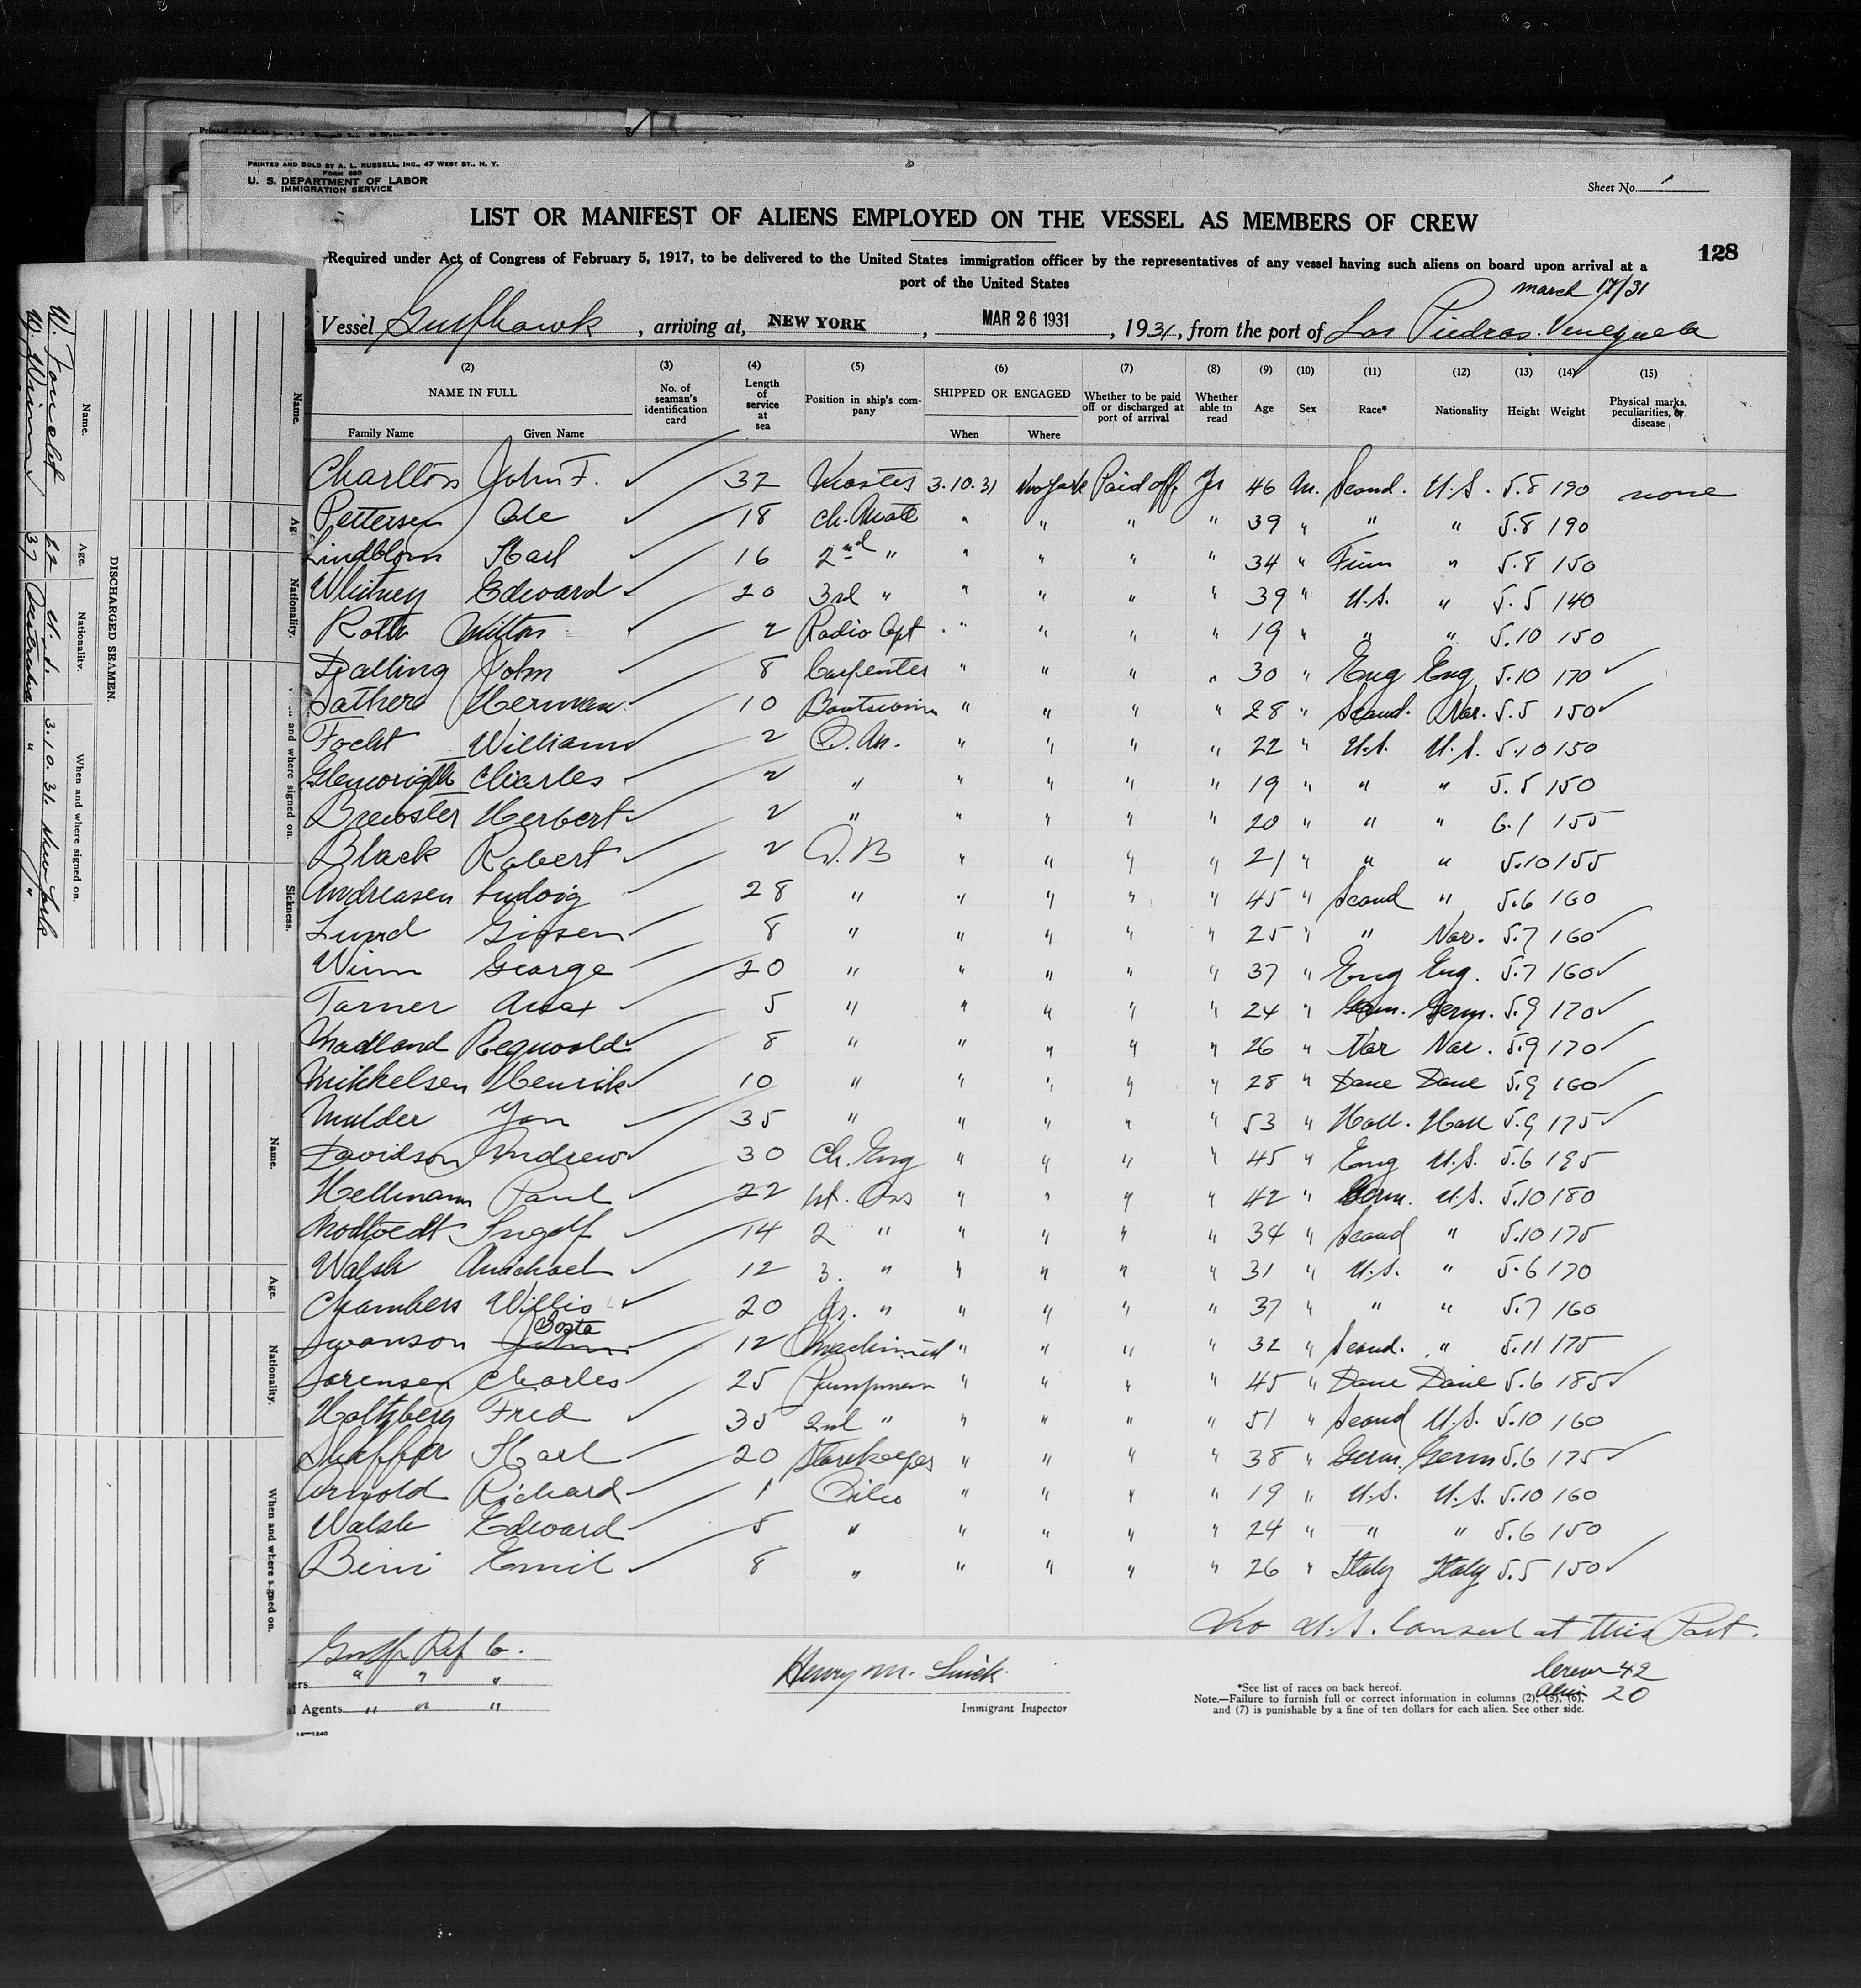 PRINTED AND SOLD BY A. L. RUSSELL, INC., 47 WEST ST., N. Y.
FORM 680
U. S. DEPARTMENT OF LABOR
IMMIGRATION SERVICE
Sheet No. 1
LIST OR MANIFEST OF ALIENS EMPLOYED ON THE VESSEL AS MEMBERS OF CREW
128
Required under Act of Congress of February 5, 1917, to be delivered to the United States immigration officer by the representatives of any vessel having such aliens on board upon arrival at a
port of the United States
march 17/31
Vessel Gulfhawk, arriving at, NEW YORK, MAR 26 1931, 1931, from the port of Las Piedras Venezuela
(2) (3) (4) (5) (6) (7) (8) (9) (10) (11) (12) (13) (14) (15)
NAME IN FULL No. of seaman's identification card Length of service at sea Position in ship's company SHIPPED OR ENGAGED Whether to be paid off or discharged at port of arrival Whether able to read Age Sex Race* Nationality Height Weight Physical marks, peculiarities, or disease
Family Name Given Name When Where
Charlton John F. 32 Master 3.10.31 New York Paid off. Yes 46 M. Scand. U.S. 5.8 190 none
Pettersen Ole 18 Ch. Mate " " " " 39 " " " 5.8 190
Lindblom Karl 16 2nd " " " " " 34 " Finn " 5.8 150
Whitney Edward 20 3rd " " " " " 39 " U.S. " 5.5 140
Roth Milton 2 Radio Opt " " " " 19 " " " 5.10 150
Dalling John 8 Carpenter " " " " 30 " Eng Eng 5.10 170
Herman 10 Boatswain " " " " 28 " Scand. Nor. 5.5 150
Focht William 2 Q.M. " " " " 22 " U.S. U.S. 5.10 150
Glenwright Charles 2 " " " " " 19 " " " 5.5 150
Brewster Herbert 2 " " " " " 20 " " " 6.1 155
Black Robert 2 " " " " 21 " " " 5.10 155
Andreasen Ludvig 28 " " " " " 45 " Scand " 5.6 160
Lund 8 " " " " " 25 " " Nor. 5.7 160
Winn George 20 " " " " " 37 " Eng Eng. 5.7 160
Tarner Max 5 " " " " " 24 " Germ. Germ. 5.9 170
Madland Regwald 8 " " " " " 26 " Nor Nor. 5.9 170
Mikkelsen Henrik 10 " " " " " 28 " Dane Dane 5.9 160
Mulder Jan 35 " " " " " 53 " Holl. Holl 5.9 175
Davidson Andrew 30 Ch. Eng " " " " 45 " Eng U.S. 5.6 195
Hellmann Paul 22 1st. Ass " " " " 42 " Germ. U.S. 5.10 180
Ingolf 14 2 " " " " " 34 " Scand " 5.10 175
Walsh Michael 12 3. " " " " " 31 " U.S. " 5.6 170
Chambers Willis 20 Jr. " " " " " 37 " " " 5.7 160
Gosta
Swanson John 12 Machinist " " " " 32 " Scand. " 5.11 175
Sorensen Charles 25 Pumpman " " " " 45 " Dane Dane 5.6 185
Holtzberg Fred 35 2nd " " " " " 51 " Scand U.S. 5.10 160
Shaffer Karl 20 Storekeeper " " " " 38 " Germ. Germ 5.6 175
Arnold Richard 1 Oiler " " " " 19 " U.S. U.S. 5.10 160
Walsh Edward 5 " " " " " 24 " " " 5.6 150
Bini Emil 8 " " " " " 26 " Italy Italy 5.5 150
No U.S. Consul at this Port.
Gulf Ref Co.
ners " " "
l Agents " " "
Henry M.
Immigrant Inspector
Crew 42
Alien 20
*See list of races on back hereof.
Note.—Failure to furnish full or correct information in columns (2), (5), (6),
and (7) is punishable by a fine of ten dollars for each alien. See other side.
14—1240
DISCHARGED SEAMEN.
Name. Age. Nationality. When and where signed on.
22 U.S. 3.10.31. New York
W. Winn 37 Australia " "
Name. Ag Nationality. and where signed on. Sickness.
Name. Age. Nationality. When and where signed on.